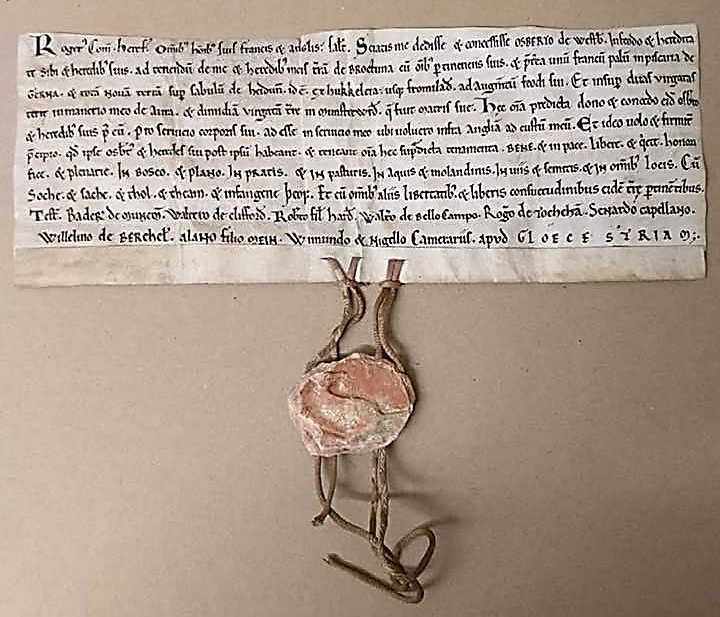 Roger' Com' heref'. Omib' hoib' suis francis & anglis: salt'. Sciatis me dedisse & concessisse OSBERTO de westb'. In feodo & heredita
te sibi & heredib' suis. ad tenendu de me & heredib' meis tra de Broctuna cu oib' ptinenciis suis. & pterea unu francu in piscaria de
GERNA. & tota noua terra sup sabulu de hedun. id e. & usq ad augmtu feodi sui. Et insup duas uirgatas
terre in manerio meo de & dimidia uirgata tre in munstrword. q fuit matris sue. Hec oia predicta dono & concedo eid osbto
& heredib' suis p cu. pro seruicio corporis sui. ad esse in seruicio meo ubi uoluero infra Anglia ad custu meu. Et ideo uolo & firmit
pcipio. qd ipse osbt' & heredes sui post ipsu habeant. & teneant oia hec supdicta tenamenta. BENE. & in pace. Libere. & qete. honori
fice. & plenarie. IN BOSCO. & PLANO. IN PRATIS. & IN pasturis. IN Aquis & molandinis. IN uiis & semitis. & IN omib' locis. Cu
Soche. & sache. & thol. & theam. & infangene þeof. Et cu omib' aliis libertatib'. & liberis consuetudinibus eide tre ptinetibus.
Test'. Bader' de Waltero de clifford. Robto fil' Walto de Bello Campo. Rogo de Senardo capellano.
Willelmo de BERCHEL'. ALANO filio MEIN. Wimundo & Nigello Camerariis. apud GLOECESTRIAM;.